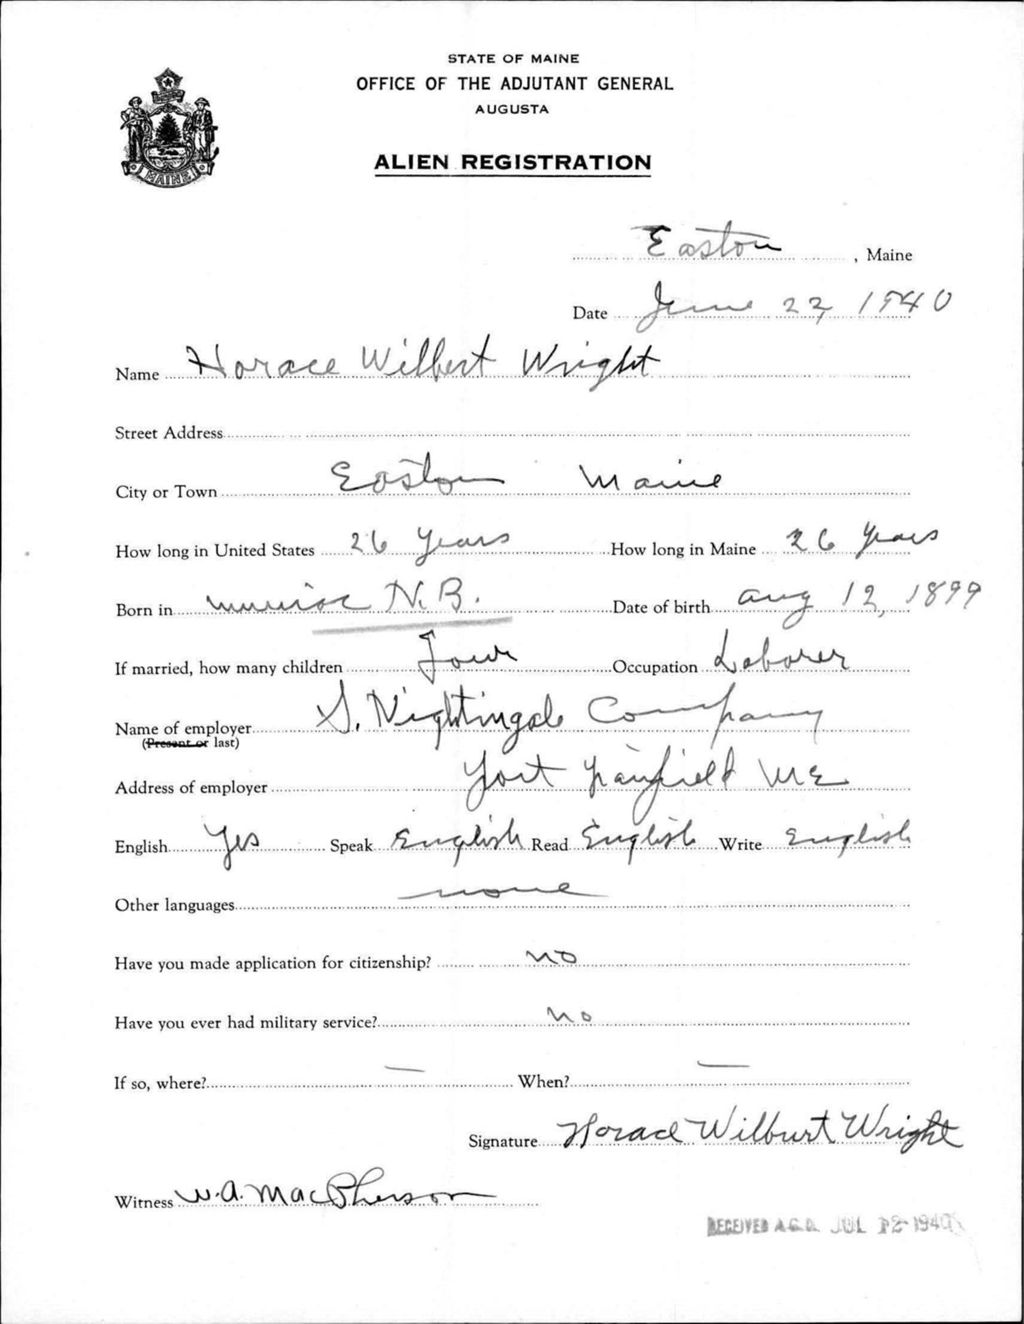 STATE OF MAINE
OFFICE OF THE ADJUTANT GENERAL
AUGUSTA
MAINE
ALIEN REGISTRATION
Easton, Maine
Date June 22, 1940
Name Horace Wilbert Wright
Street Address
City or Town Easton Maine
How long in United States 26 Years How long in Maine 26 Years
Born in N.B. Date of birth Aug 12, 1899
If married, how many children Four Occupation Laborer
Name of employer S. Nightingale Company
(Present or last)
Address of employer Fort Fairfield ME
English Yes Speak English Read English Write English
Other languages none
Have you made application for citizenship? no
Have you ever had military service? no
If so, where? — When? —
Signature Horace Wilburt Wright
Witness W.A. MacPherson
RECEIVED A.G.O. JUL 12 1940